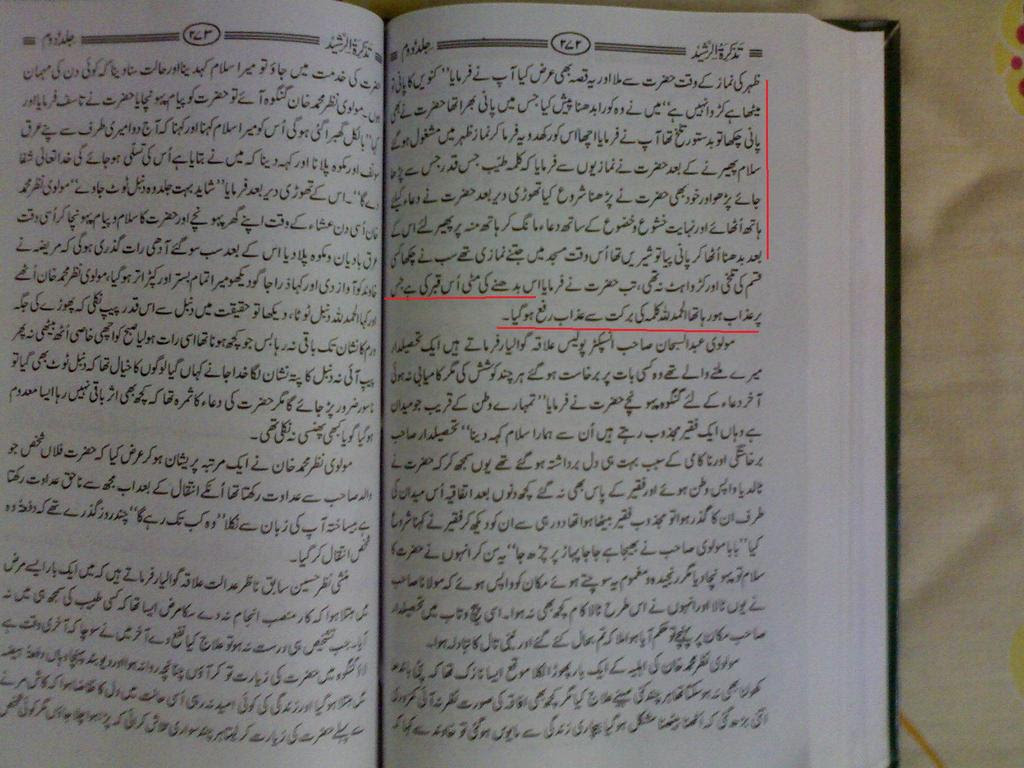 تذکرۃ الرشید ۲۷۲ جلد دوم
ظہر کی نماز کے وقت حضرت سے ملا اور یہ قصہ بھی عرض کیا آپ نے فرمایا "کنویں کا پانی تو
میٹھا ہے کڑوا نہیں ہے" میں نے وہ کورا بدھنا پیش کیا جس میں پانی بھرا تھا حضرت نے بھی
پانی چکھا تو بدستور تلخ تھا آپ نے فرمایا اچھا اس کو رکھدو یہ فرما کر نماز ظہر میں مشغول ہو گئے
سلام پھیرنے کے بعد حضرت نے نمازیوں سے فرمایا کہ کلمہ طیب جس قدر جس سے پڑھا
جائے پڑھو اور خود بھی حضرت نے پڑھنا شروع کیا تھوڑی دیر بعد حضرت نے دعاء کیلئے
ہاتھ اُٹھائے اور نہایت خشوع و خضوع کے ساتھ دعاء مانگ کر ہاتھ منہ پر پھیر لئے اس کے
بعد بدھنا اُٹھا کر پانی پیا تو شیریں تھا اُس وقت مسجد میں جتنے نمازی تھے سب نے چکھا کسی
قسم کی تلخی اور کڑواہٹ نہ تھی، تب حضرت نے فرمایا اس بدھنے کی مٹی اُس قبر کی ہے جس
پر عذاب ہو رہا تھا الحمدللہ کلمہ کی برکت سے عذاب رفع ہو گیا۔
مولوی عبدالسبحان صاحب انسپکٹر پولیس علاقہ گوالیار فرماتے ہیں ایک تحصیلدار
میرے ملنے والے تھے وہ کسی بات پر برخاست ہو گئے ہر چند کوشش کی مگر کامیابی نہ ہوئی
آخر دعاء کے لئے گنگوہ پہونچے حضرت نے فرمایا "تمہارے وطن کے قریب جو میدان
ہے وہاں ایک فقیر مجذوب رہتے ہیں اُن سے ہمارا سلام کہہ دینا" تحصیلدار صاحب
برخاستگی اور ناکامی کے سبب بہت ہی دل برداشتہ ہو گئے تھے یوں سمجھ کر کہ حضرت نے
ٹالدیا واپس وطن ہوئے اور فقیر کے پاس بھی نہ گئے کچھ دنوں بعد اتفاقیہ اُس میدان کی
طرف ان کا گذر ہوا تو مجذوب فقیر بیٹھا ہوا تھا دور ہی سے ان کو دیکھ کر فقیر نے کہنا شروع
کیا "بابا مولوی صاحب نے بھیجا ہے جا جا پہاڑ پر چڑھ جا" یہ سن کر انہوں نے حضرت کا
سلام تو پہونچا دیا مگر رنجیدہ و مغموم یہ سوچتے ہوئے مکان کو واپس ہوئے کہ مولانا صاحب
نے یوں ٹالا اور انہوں نے اس طرح ٹالا کام کچھ بھی نہ ہوا۔ اسی پیچ و تاب میں تحصیلدار
صاحب مکان پر پہنچے تو حکم آیا ہوا ملا کہ تم بحال کئے گئے اور نینی تال کا تبادلہ ہوا۔
مولوی نظر محمد خان کی اہلیہ کے ایک بار پھوڑا نکلا موقع ایسا نازک تھا کہ پٹی باندھنا
کھولنا بھی نہ ہو سکتا تھا ہر چند کئی مہینے علاج کیا مگر کچھ بھی افاقہ کی صورت نظر نہ آئی کمزوری
اتنی بڑھ گئی کہ اٹھنا بیٹھنا مشکل ہو گیا بیچاری زندگی سے مایوس ہو گئی تو خاوند سے کہا کہ
تذکرۃ الرشید ۲۷۳ جلد دوم
حضرت کی خدمت میں جاؤ تو میرا سلام کہدینا اور حالت سنا دینا کہ کوئی دن کی مہمان
ہوں۔ مولوی نظر محمد خان گنگوہ آئے تو حضرت کو پیام پہونچایا حضرت نے تاسف فرمایا اور
کہا "بالکل گھبرا گئی ہو گی اُس کو میرا سلام کہنا اور کہنا کہ آج دوا میری طرف سے پئے عرق
سونف اور مکوہ پلانا اور کہہ دینا کہ میں نے بتایا ہے اُس کی تسلی ہو جائے گی خدا تعالی شفا
دے گا"۔ اس کے تھوڑی دیر بعد فرمایا "شاید بہت جلد وہ دنبل ٹوٹ جاوے" مولوی نظر محمد
خان اُسی دن عشاء کے وقت اپنے گھر پہونچے اور حضرت کا سلام و پیام پہونچا کر اُسی وقت
عرق بادیان و مکوہ پلا دیا اس کے بعد سب سو گئے آدھی رات گذری ہوگی کہ مریضہ نے
خاوند کو آواز دی اور کہا ذرا جاگو دیکھو میرا تمام بستر اور کپڑا تر ہو گیا، مولوی نظر محمد خان اُٹھے
اور کہا الحمدللہ دنبل ٹوٹا، دیکھا تو حقیقت میں دنبل سے اس قدر پیپ نکلی کہ پھوڑے کی جگہ
ورم کا نشان تک باقی نہ رہا بس جو کچھ ہونا تھا اُسی رات ہو لیا صبح کو اچھی خاصی اُٹھ بیٹھی نہ پھر
پیپ آئی نہ دنبل کا پتہ نشان لگا خدا جانے کہاں گیا لوگوں کا خیال تھا کہ دنبل ٹوٹ بھی گیا تو
ناسور ضرور پڑ جائے گا مگر حضرت کی دعاء کا ثمرہ تھا کہ کچھ بھی اثر باقی نہیں رہا ایسا معدوم
ہو گیا گویا کبھی پھنسی نہ نکلی تھی۔
مولوی نظر محمد خان نے ایک مرتبہ پریشان ہو کر عرض کیا کہ حضرت فلاں شخص جو
والد صاحب سے عداوت رکھتا تھا اُنکے انتقال کے بعد اب مجھ سے ناحق عداوت رکھتا
ہے بیساختہ آپ کی زبان سے نکلا "وہ کب تک رہے گا" چند روز گذرے تھے کہ دفعۃً وہ
شخص انتقال کر گیا۔
منشی نظر حسین سابق ناظر عدالت علاقہ گوالیار فرماتے ہیں کہ میں ایک بار ایسے مرض
میں مبتلا ہوا کہ کار منصب انجام نہ دے سکا مرض ایسا تھا کہ کسی طبیب کی سمجھ ہی میں نہ
آیا۔ جب تشخیص ہی درست نہ ہو تو علاج کیا نفع دے آخر میں نے سوچا کہ آخری وقت ہے
لاؤ گنگوہ میں حضرت کی زیارت تو کر آؤں چنانچہ روانہ ہوا اور دیوبند پہنچا وہاں دفعۃً ہیضہ
میں مبتلا ہو گیا اور زندگی کی کوئی امید نہ رہی اُسی حالت میں دل کا تقاضا ہوا کہ کاش مرنے
سے پہلے حضرت کی زیارت کر لیتا ہر چند سواری تلاش کرائی کہ پڑا ہوا چلا جاؤں مگر کوئی شخص